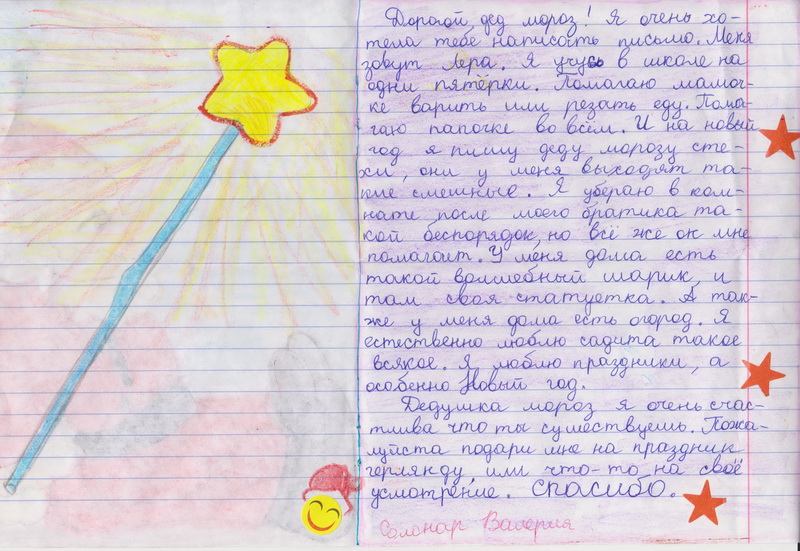 Дорогой, дед мороз! Я очень хо-
тела тебе написать письмо. Меня
зовут Лера. Я учусь в школе на
одни пятёрки. Помагаю мамоч-
ке варить или резать еду. Пома-
гаю папочке во всём. И на новый
год я пишу деду морозу сте-
хи, они у меня выходят та-
кие смешные. Я убераю в ком-
нате после моего братика та-
кой беспорядок, но всё же он мне
помагоит. У меня дома есть
такой волшебный шарик, и
там своя статуетка. А так-
же у меня дома есть огород. Я
естественно люблю садита такое
всякое. Я люблю праздники, а
особенно Новый год.
Дедушка мороз я очень счас-
тлива что ты сужествуешь. Пожа-
луйста подари мне на праздник
герлянду, или что-то на своё
усмотрение. Спасибо.
Солонар Валерия